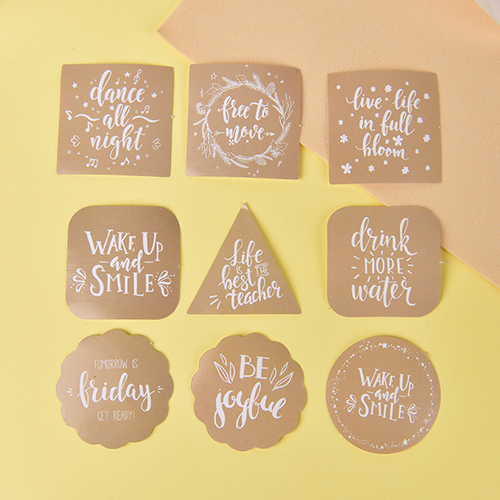 dance
all
night
free to
move
live • life
in full
bloom
WAKE UP
and
SMILE
Life
IS THE
best
teacher
drink
MORE
water
TOMORROW IS
friday
GET READY!
BE
joyful
WAKE UP
and
SMILE